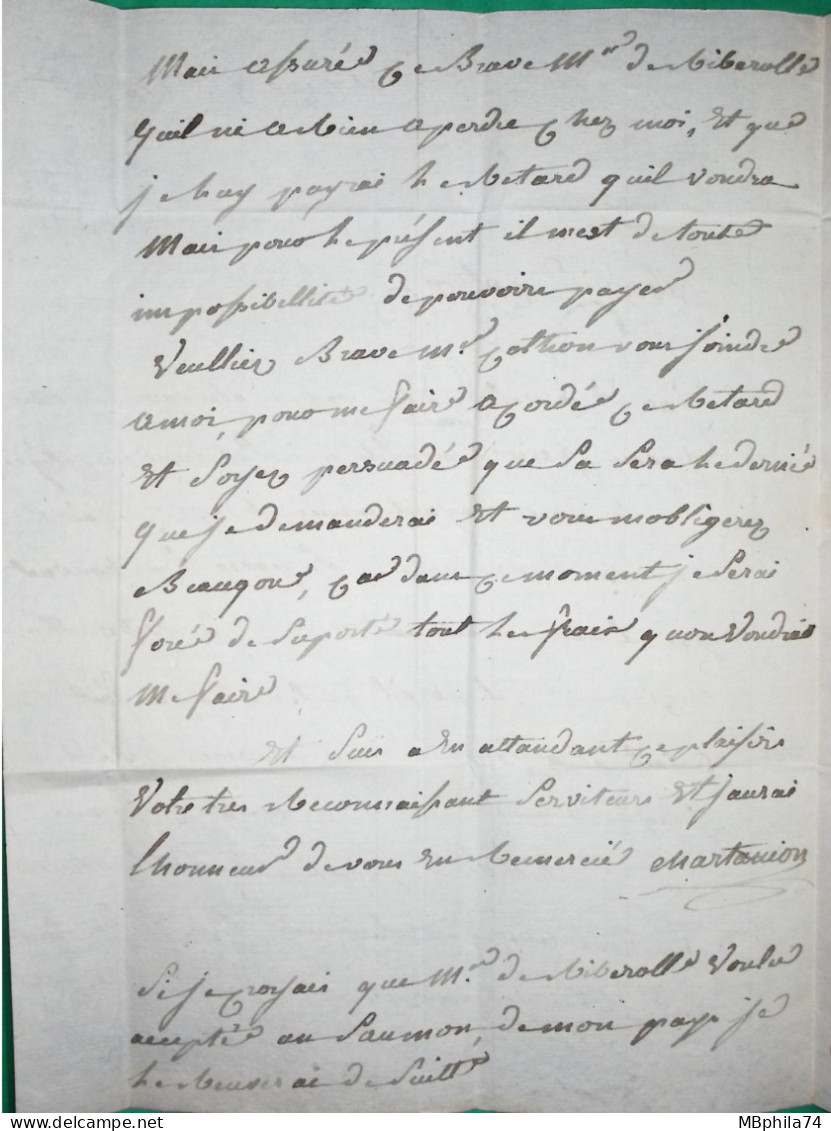 Mais assuré ce Brave Mr de Riberolle
quil ne a Rien a perdre chez moi, Et que
je luy payrai le Retard quil voudra
Mais pour le présent il mest de toute
impossibellité de pouvoire payer
Veullier Brave Mr Cathion vous joindre
a moi, pour me faire acordé ce Retard
Et Soyez persuadée que Sa Sera le dernié
que je demanderai Et vous mobligerez
Beaucou, car dans ce moment je Serai
forcé de Suporté tout les frais quon Voudra
Me faire
Et Suis a En attandant ce plaisir
Votre tres Reconnaissant Serviteur Et jaurai
lhonneur de vous En Remercié Chartanion
Si je croyais que Mr de Riberolle Voulu
accepté un Saumon, de mon pays je
le Renverai de Suitte
MBphila74